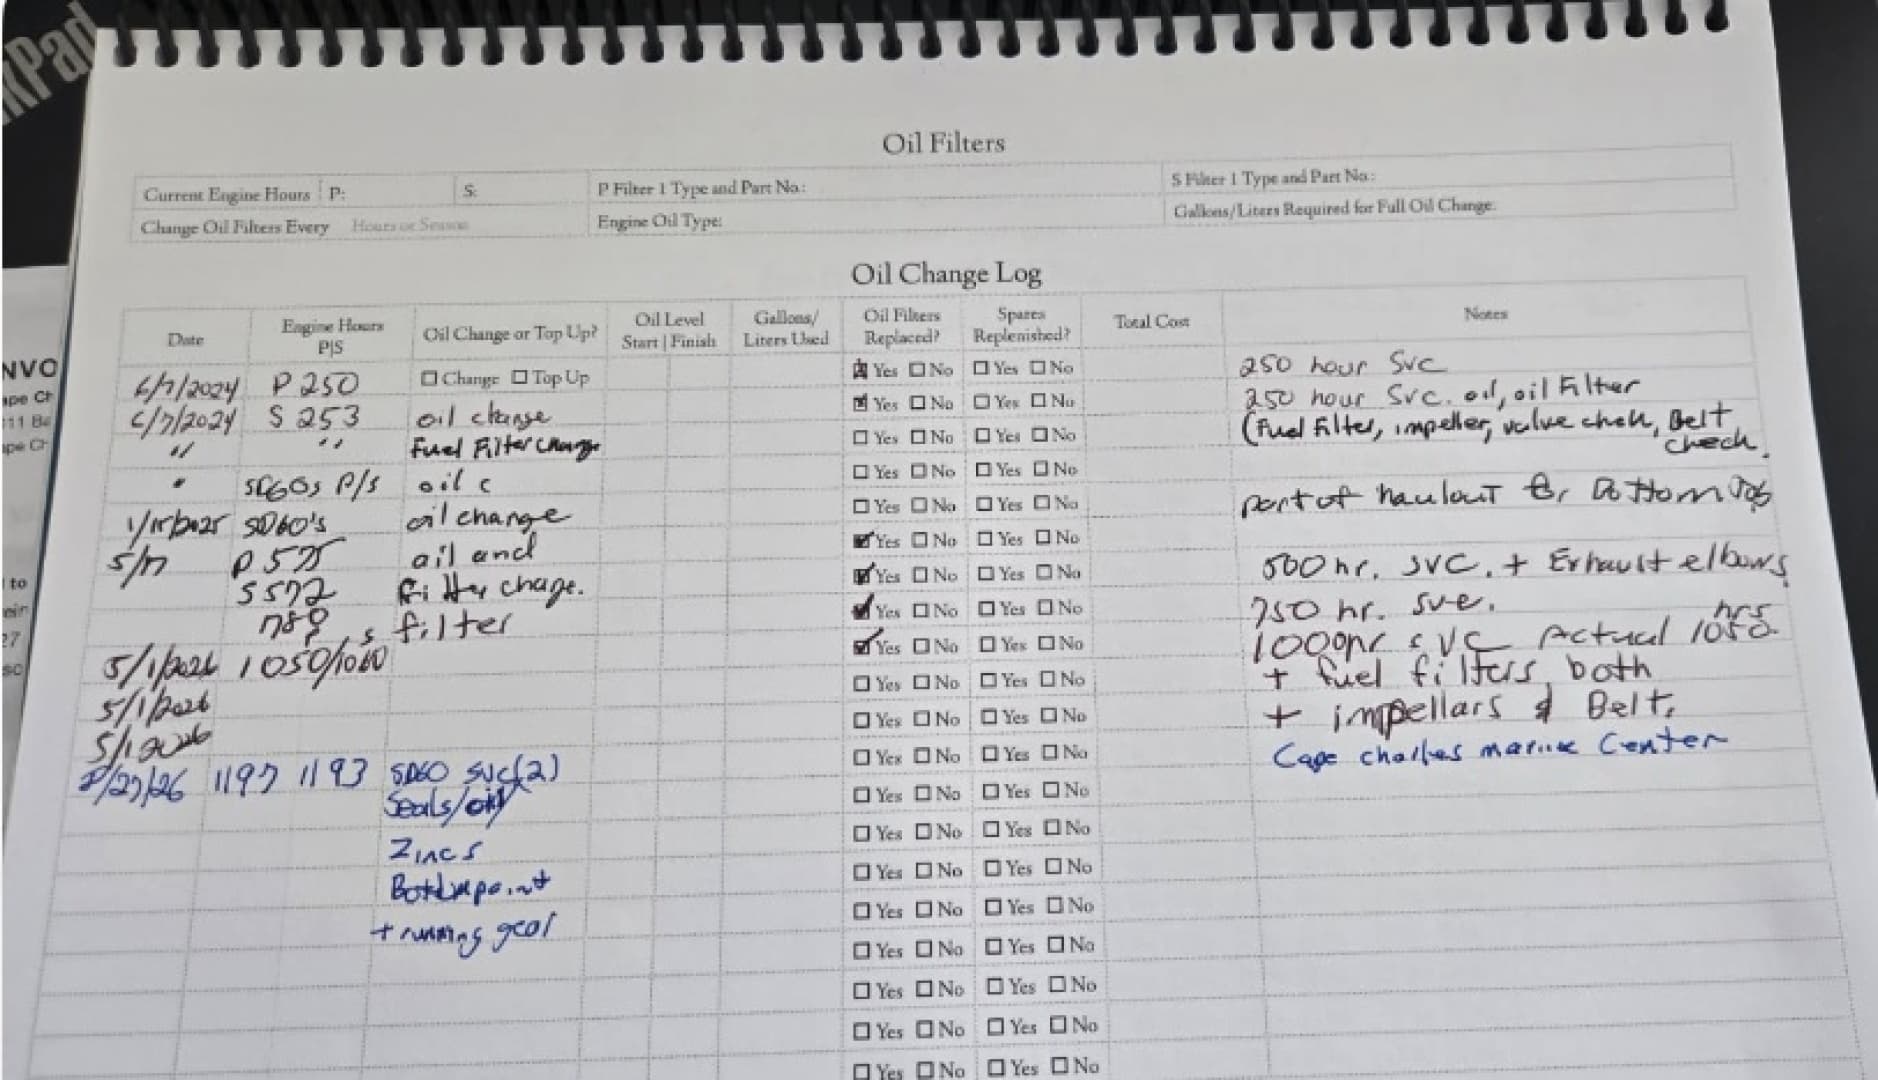 Pad
Oil Filters
Current Engine Hours P: S: P Filter 1 Type and Part No.: S Filter 1 Type and Part No.:
Change Oil Filters Every Hours or Season Engine Oil Type: Gallons/Liters Required for Full Oil Change:
Oil Change Log
Date Engine Hours P|S Oil Change or Top Up? Oil Level Start | Finish Gallons/Liters Used Oil Filters Replaced? Spares Replenished? Total Cost Notes
6/7/2024 P 250 ☐ Change ☐ Top Up ☒ Yes ☐ No ☐ Yes ☐ No 250 hour Svc
6/7/2024 S 253 oil change ☒ Yes ☐ No ☐ Yes ☐ No 250 hour Svc. oil, oil Filter
" " Fuel Filter change ☐ Yes ☐ No ☐ Yes ☐ No (Fuel Filter, impeller, valve chek, Belt check.
" SD60s P/S oil c ☐ Yes ☐ No ☐ Yes ☐ No
1/15/2025 SD60's oil change ☐ Yes ☐ No ☐ Yes ☐ No part of haulout for Bottom Job
5/17 P 575 oil and ☑ Yes ☐ No ☐ Yes ☐ No
S 572 filter change. ☑ Yes ☐ No ☐ Yes ☐ No 500 hr. svc. + Exhaust elbows
789 , s filter ☑ Yes ☐ No ☐ Yes ☐ No 750 hr. sve.
5/1/2026 1050/1060 ☑ Yes ☐ No ☐ Yes ☐ No 1000hr SVC Actual 1050 hrs
5/1/2026 ☐ Yes ☐ No ☐ Yes ☐ No + fuel filters both
5/1 2026 ☐ Yes ☐ No ☐ Yes ☐ No + impellars & Belt,
/27/26 1197 1193 SD60 SVC(2) ☐ Yes ☐ No ☐ Yes ☐ No Cape charles marine Center
Seals/oil ☐ Yes ☐ No ☐ Yes ☐ No
☐ Yes ☐ No ☐ Yes ☐ No
Zincs ☐ Yes ☐ No ☐ Yes ☐ No
Bottompaint ☐ Yes ☐ No ☐ Yes ☐ No
+ running gear ☐ Yes ☐ No ☐ Yes ☐ No
☐ Yes ☐ No ☐ Yes ☐ No
☐ Yes ☐ No ☐ Yes ☐ No
☐ Yes ☐ No ☐ Yes ☐ No